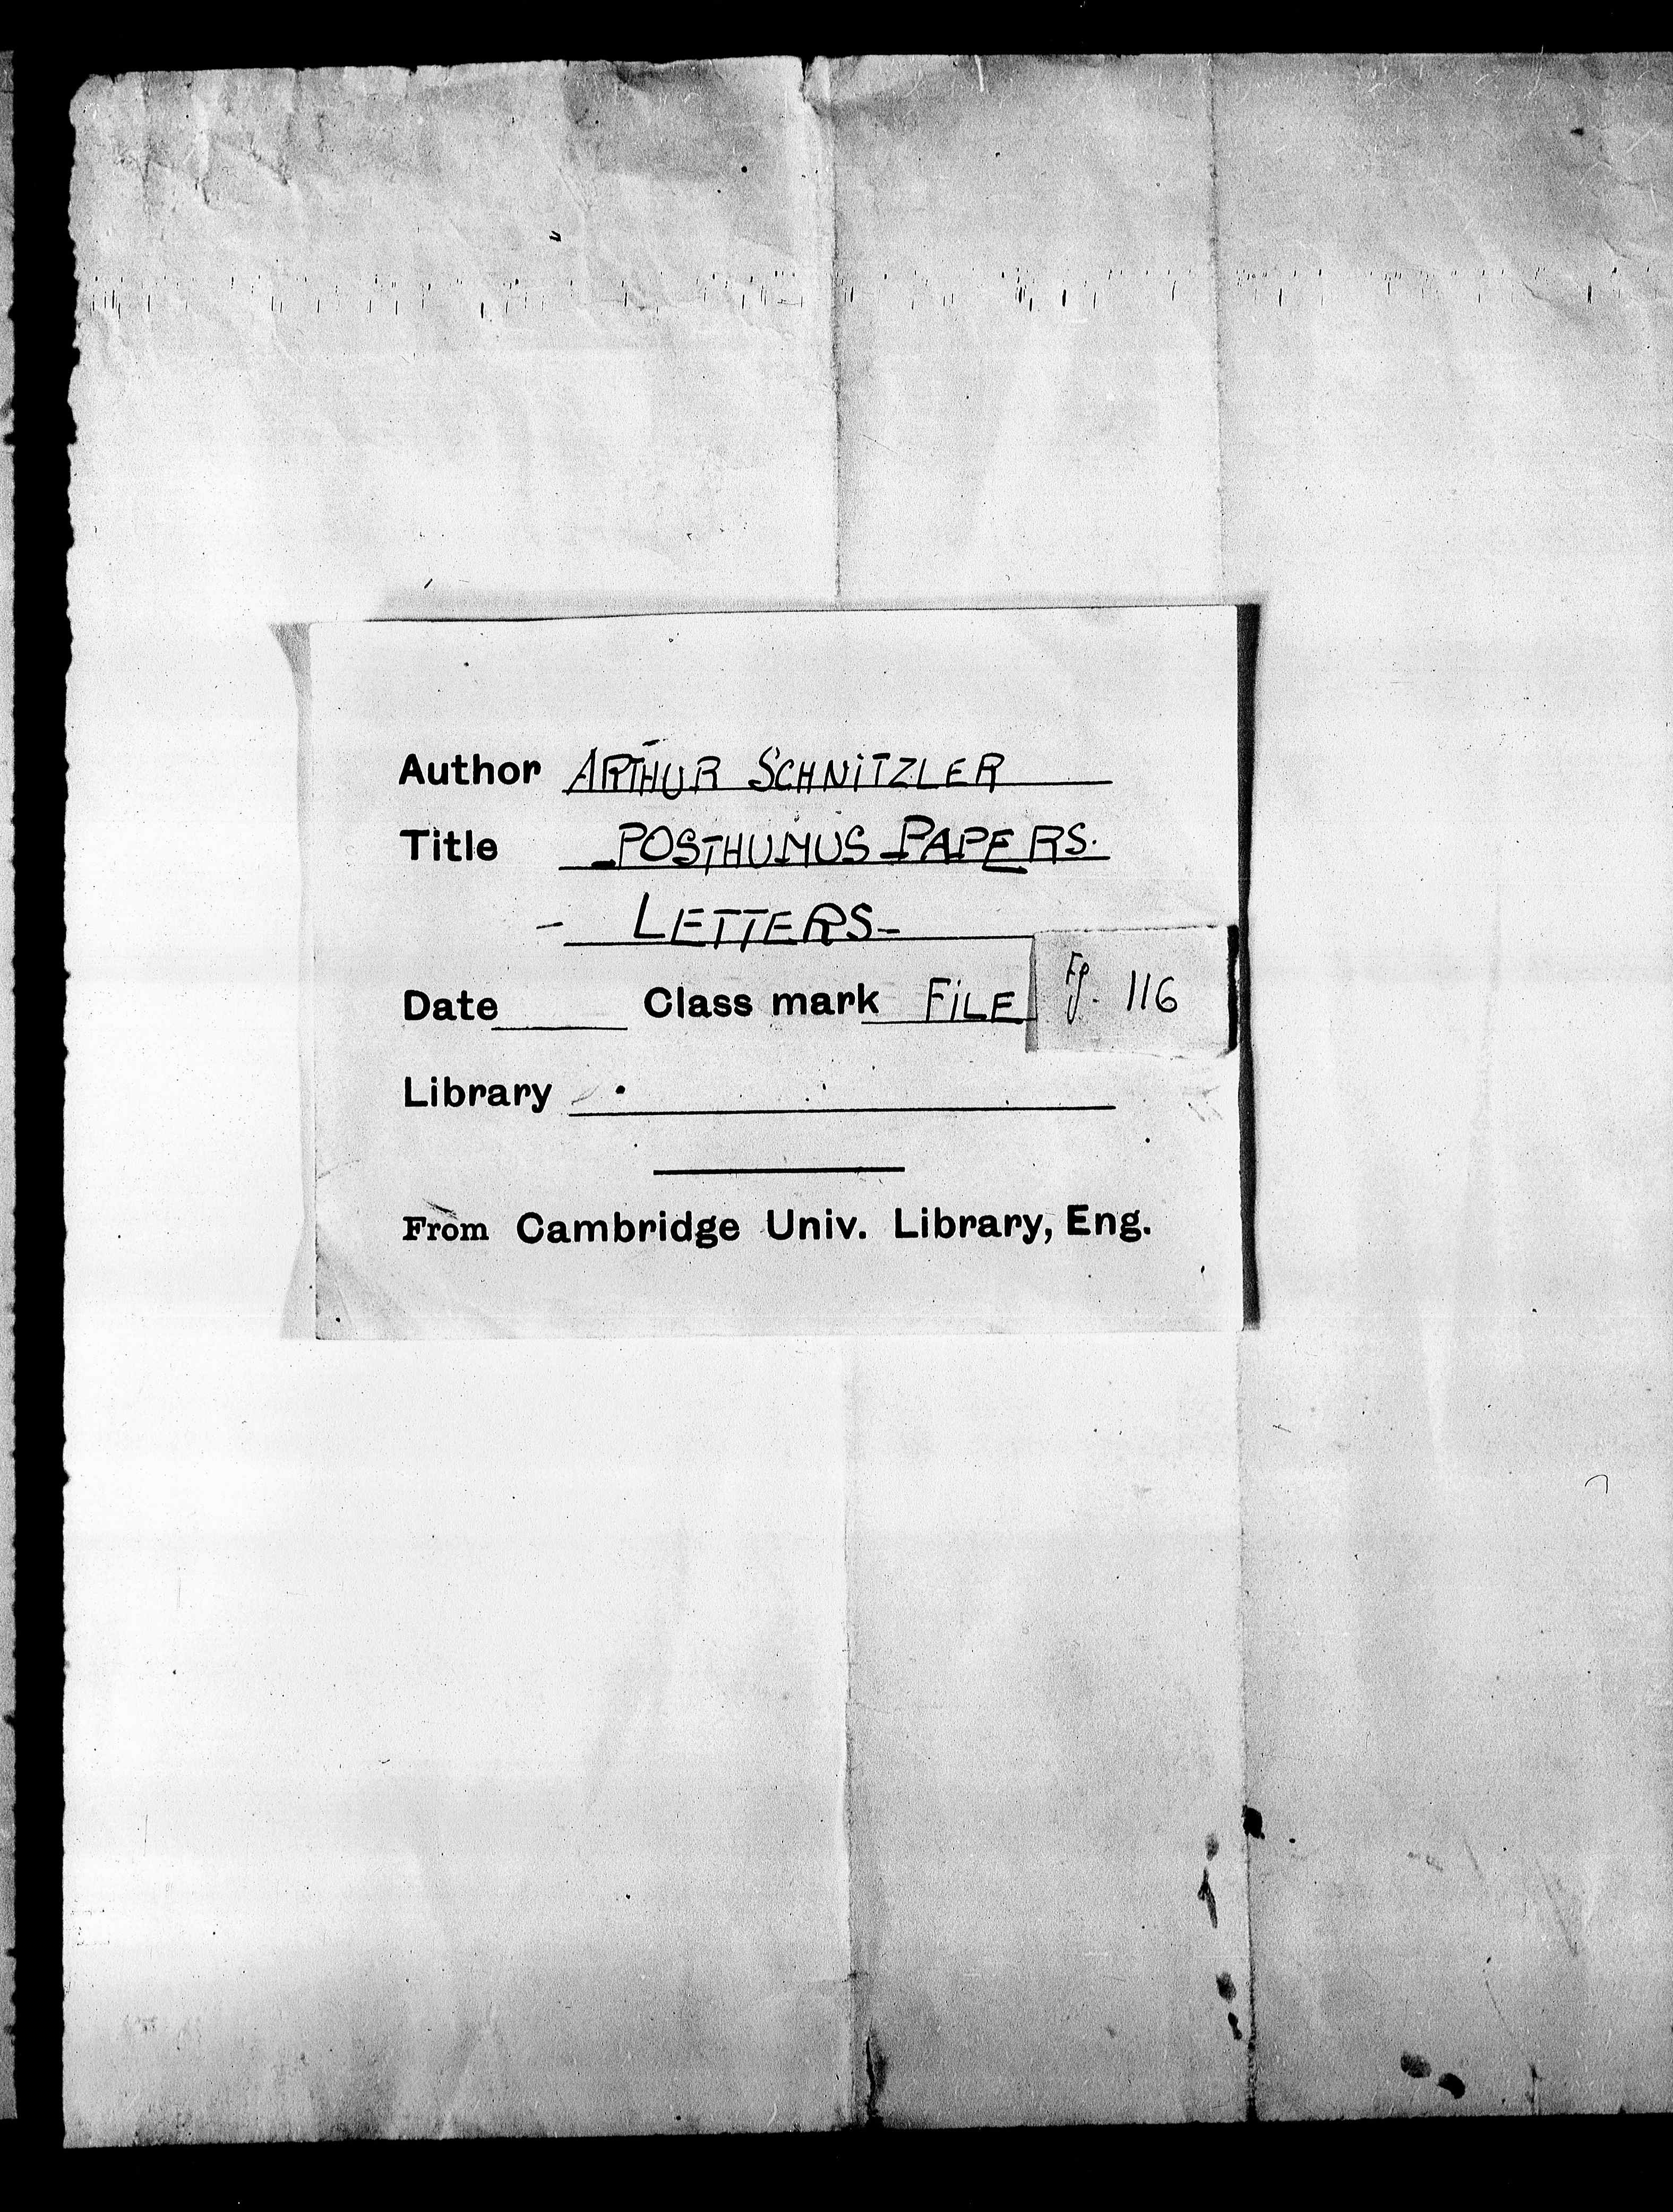 Author ARTHUR SCHNiTZLER
Title POSTHUMUS PAPERS.
- LETTERS-
Date Class mark FiLE 116
Library
From Cambridge Univ. Library, Eng.